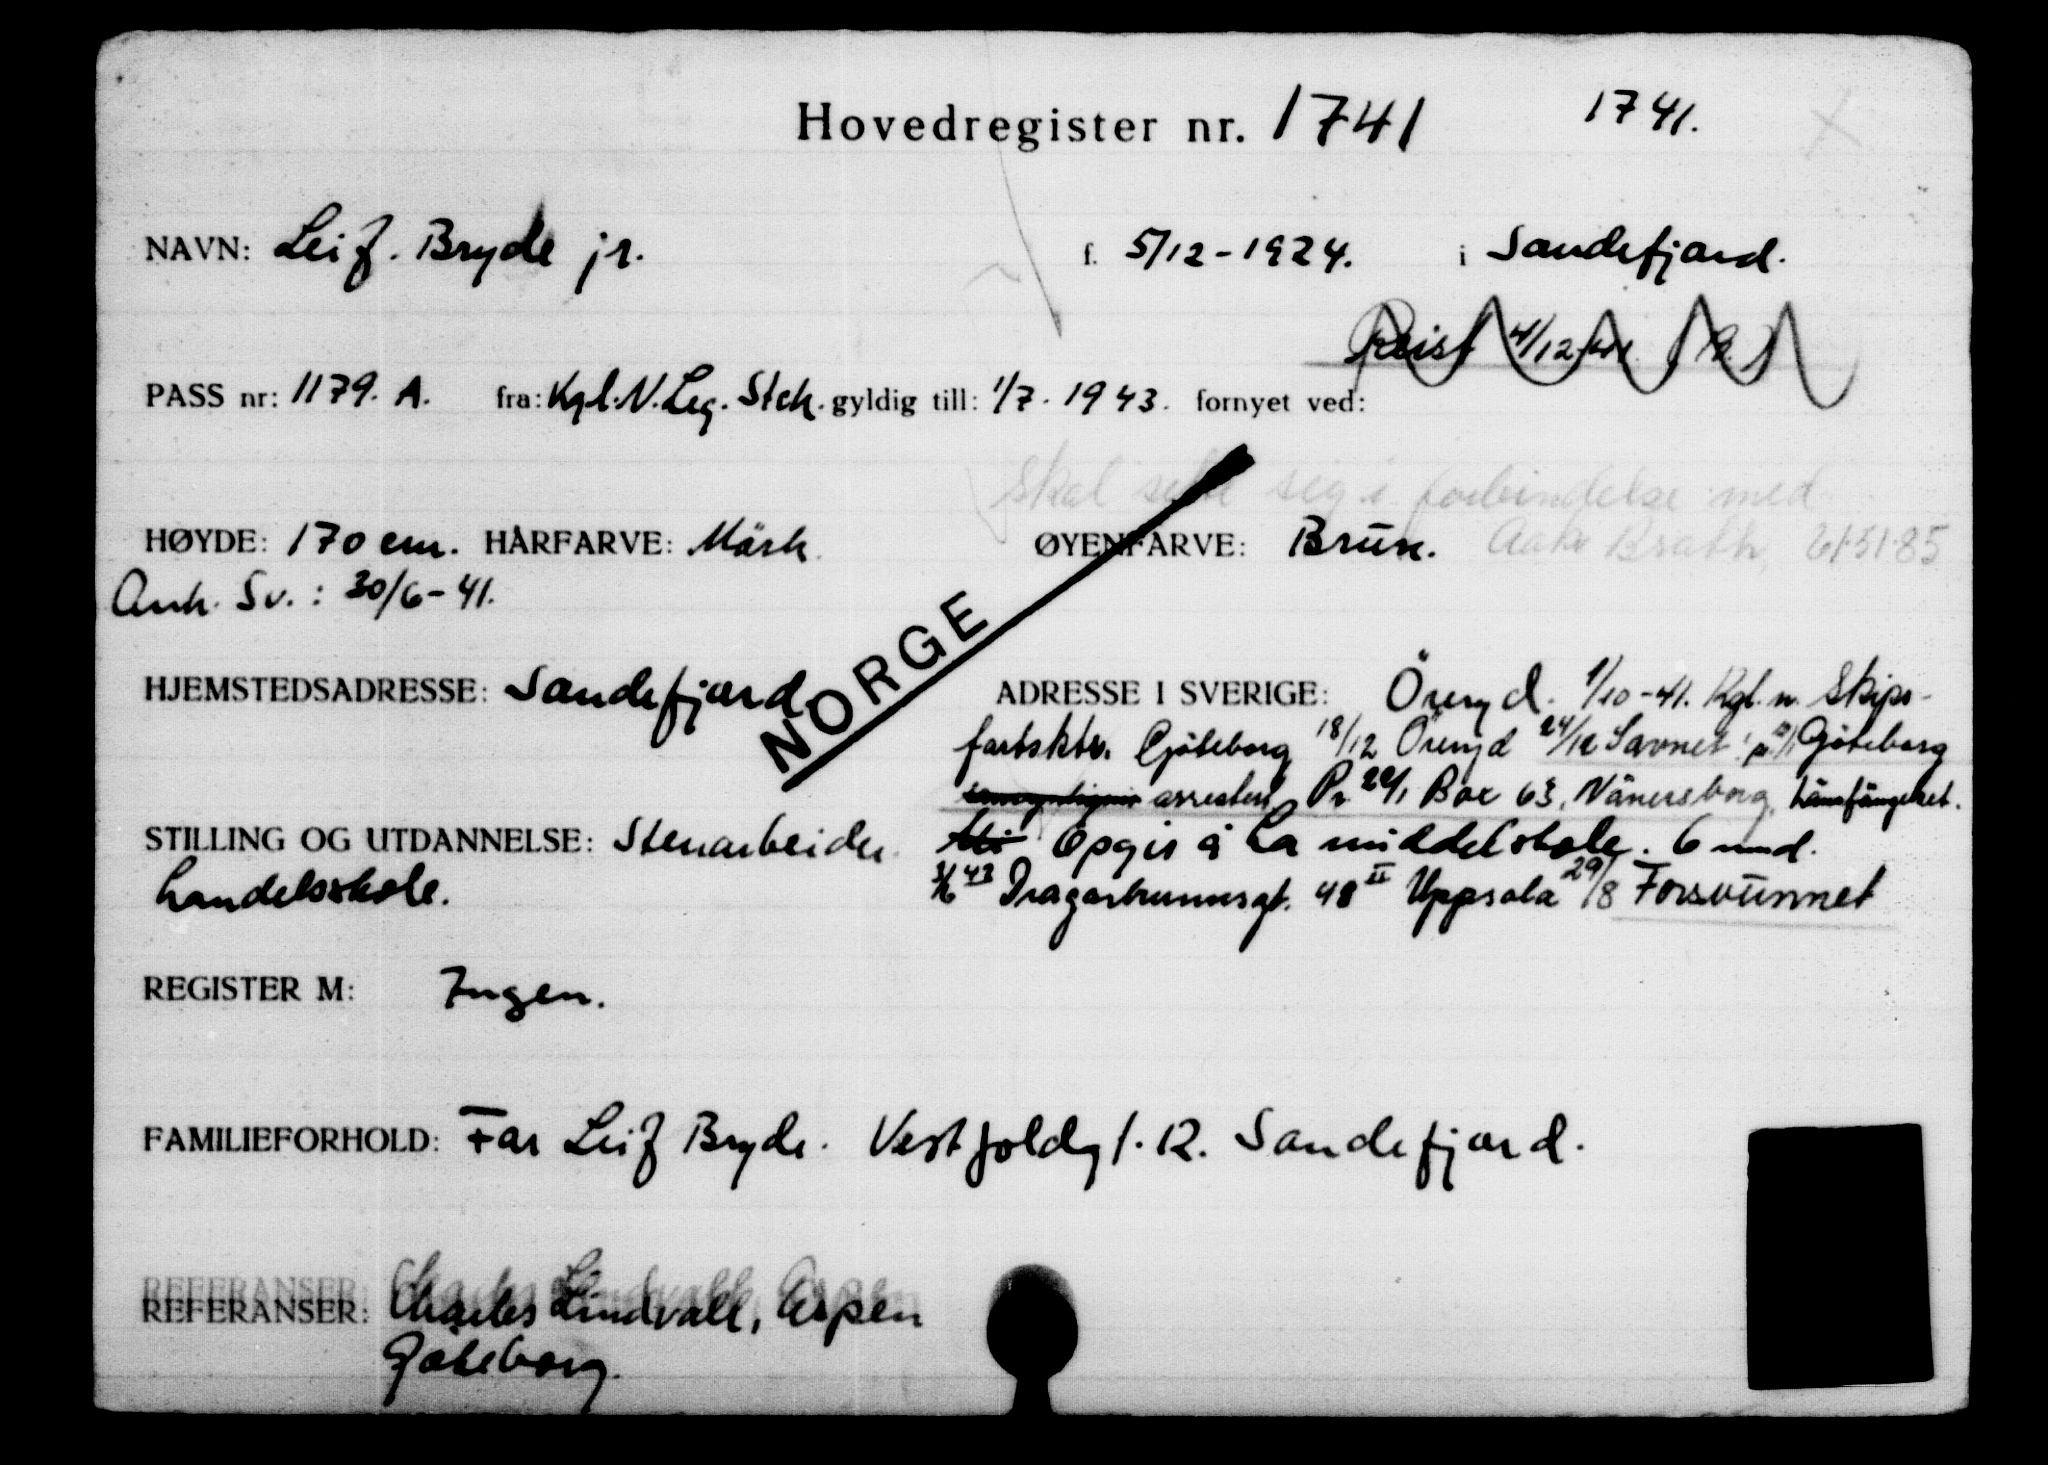 Hovedregister nr. 1741 1741.
NAVN: Leif. Bryde jr. f. 5/12-1924. i Sandefjord.
Reist 4/12-41.
PASS nr: 1179. A. fra: Kgl. N. Leg. Stch. gyldig till: 1/7. 1943. fornyet ved:
Skal sette sig i forbindelse med
HØYDE: 170 cm. HÅRFARVE: Mörk. ØYENFARVE: Brun. Aake Brath, 61.51.85
Ank. Sv.: 30/6-41.
NORGE
HJEMSTEDSADRESSE: Sandefjord. ADRESSE I SVERIGE: Öreryd. 1/10-41. Kgl. n. Skips-
fartsktr. Göteborg 18/12 Öreryd 24/12 Savnet! Göteborg
arrestert Pr 22/1 Box 63, Vänersborg, Länsfängelset.
STILLING OG UTDANNELSE: Stenarbeider. Opgir å ha middelskole. 6 mnd.
handelsskole. 3/6 43 Dragarbrunnsgt. 48 II Uppsala 29/8 Forsvunnet
REGISTER M: Ingen.
FAMILIEFORHOLD: Far Leif Bryde. Vestfoldg t. 12. Sandefjord.
REFERANSER: Charles Lindvall, Aspen
Göteborg.